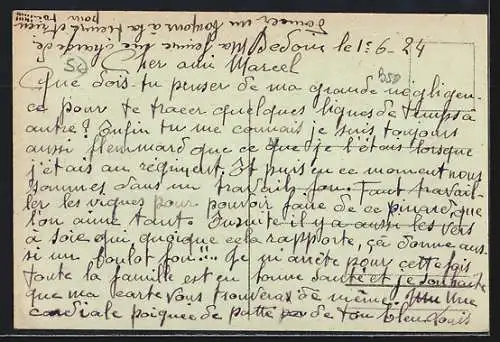 Bedoin le 1: 6 - 24
52
Cher ami Marcel
B50
Que dois-tu penser de ma grande négligen-
ce pour te tracer quelques lignes de temps à
autre? Enfin tu me connais je suis toujours
aussi flemmard que ce que je l'étais lorsque
j'étais au régiment. Et puis en ce moment nous
sommes dans un travail fou. Faut travail-
ler les vignes pour pouvoir faire de ce pinard que
l'on aime tant. Ensuite il y a aussi les vers
à soie qui, quoique cela rapporte, çà donne aus-
si un boulot fou!!! Je m'arrête pour cette fois
toute la famille est en bonne santé et je souhaite
que ma carte vous trouvera de même. Une
cordiale poignée de patte de ton bleu Louis